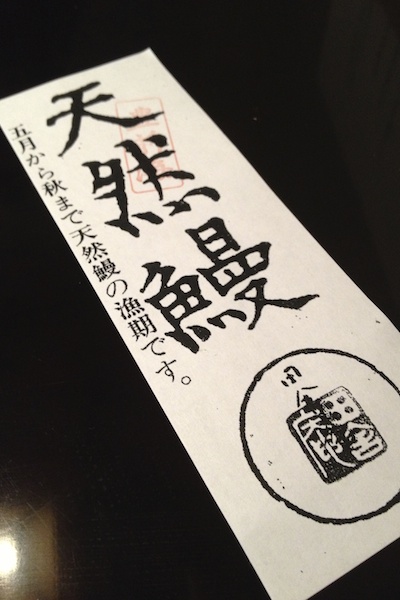 天然鰻
五月から秋まで天然鰻の漁期です。